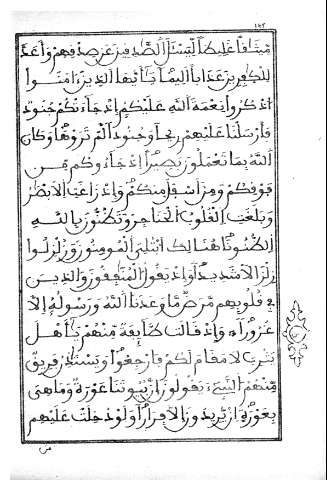 مِيثَٰقاً غَلِيظاً لِّيَسْـَٔلَ اَلصَّٰدِقِينَ عَن صِدْقِهِمْ وَأَعَدَّ
لِلْكٰفِرِينَ عَذَاباً اَلِيماً يَٰٓأَيُّهَا اَلذِينَ ءَامَنُوا
اُذْكُرُوا نِعْمَةَ اَللَّهِ عَلَيْكُمْ إِذْ جَآءَتْكُمْ جُنُودٌ
فَأَرْسَلْنَا عَلَيْهِمْ رِيحاً وَجُنُوداً لَّمْ تَرَوْهَا وَكَانَ
اَللَّهُ بِمَا تَعْمَلُونَ بَصِيراً إِذْ جَآءُوكُم مِّن
فَوْقِكُمْ وَمِنَ اَسْفَلَ مِنكُمْ وَإِذْ زَاغَتِ اِلَابْصَٰرُ
وَبَلَغَتِ اِلْقُلُوبُ اُلْحَنَاجِرَ وَتَظُنُّونَ بِاللَّهِ
اِلظُّنُونَا هُنَالِكَ اَبْتُلِيَ اَلْمُومِنُونَ وَزُلْزِلُوا
زِلْزَالاً شَدِيداً وَإِذْ يَقُولُ اُلْمُنَٰفِقُونَ وَالذِينَ
فِي قُلُوبِهِم مَّرَضٌ مَّا وَعَدَنَا اَللَّهُ وَرَسُولُهُ إِلَّا
غُرُوراً وَإِذْ قَالَت طَّآئِفَةٌ مِّنْهُمْ يَٰٓأَهْلَ
يَثْرِبَ لَا مَقَامَ لَكُمْ فَارْجِعُوا وَيَسْتَـْٔذِنُ فَرِيقٌ
مِّنْهُمُ اُلنَّبِيٓءَ يَقُولُونَ إِنَّ بُيُوتَنَا عَوْرَةٌ وَمَا هِيَ
بِعَوْرَةٍ اِنْ يُّرِيدُونَ إِلَّا فِرَاراً وَلَوْ دُخِلَتْ عَلَيْهِم
من